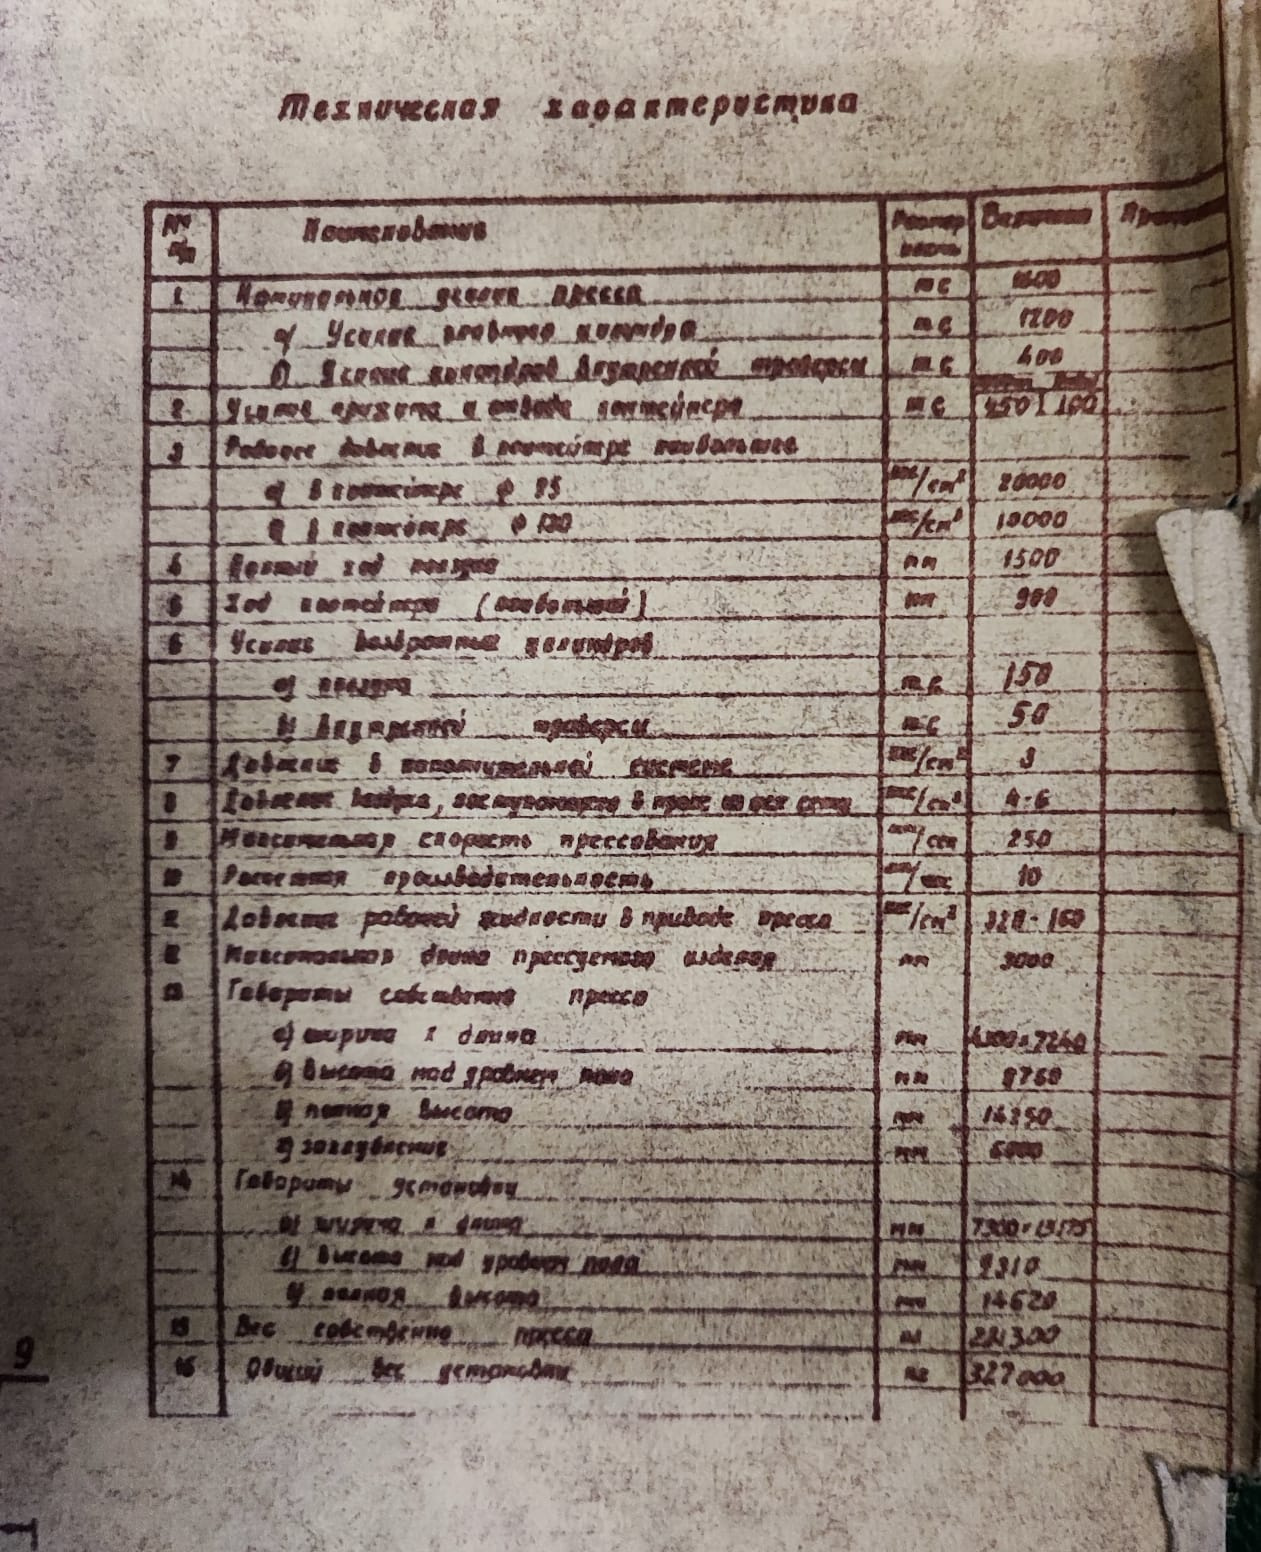 Техническая характеристика
№№ п/п Наименование Размерность Величина
1 Номинальное усилие пресса тс 1600
а) Усилие главного цилиндра тс 1200
б) Усилие цилиндров внутренней траверсы тс 400
2 Усилие прижима и отвода контейнера тс 450 | 100
3 Рабочее давление в контейнере наибольшее
а) в контейнере ф кгс/см² 20000
б) в контейнере ф кгс/см² 10000
4 Полный ход мм 1500
5 Ход контейнера (наибольший) мм 900
6 Усилие возвратных цилиндров
а) тс 150
б) внутренней траверсы тс 50
7 Давление в наполнительной системе кгс/см² 3
8 Давление воздуха, поступающего в пресс из сети кгс/см² 4-6
9 Максимальная скорость прессования мм/сек 250
10 Расчетная производительность шт/час 10
11 Давление рабочей жидкости в приводе пресса кгс/см² 320-160
12 Максимальная длина прессуемого изделия мм 3000
13 Габариты собственно пресса
а) ширина х длина мм 7240
б) Высота над уровнем пола мм 8760
в) полная высота мм 14250
г) заглубление мм
14 Габариты установки
а) ширина х длина мм 7300×13175
б) Высота над уровнем пола мм 9310
в) полная высота мм 14620
15 Вес собственно пресса кг
16 Общий вес установки кг 327000
9